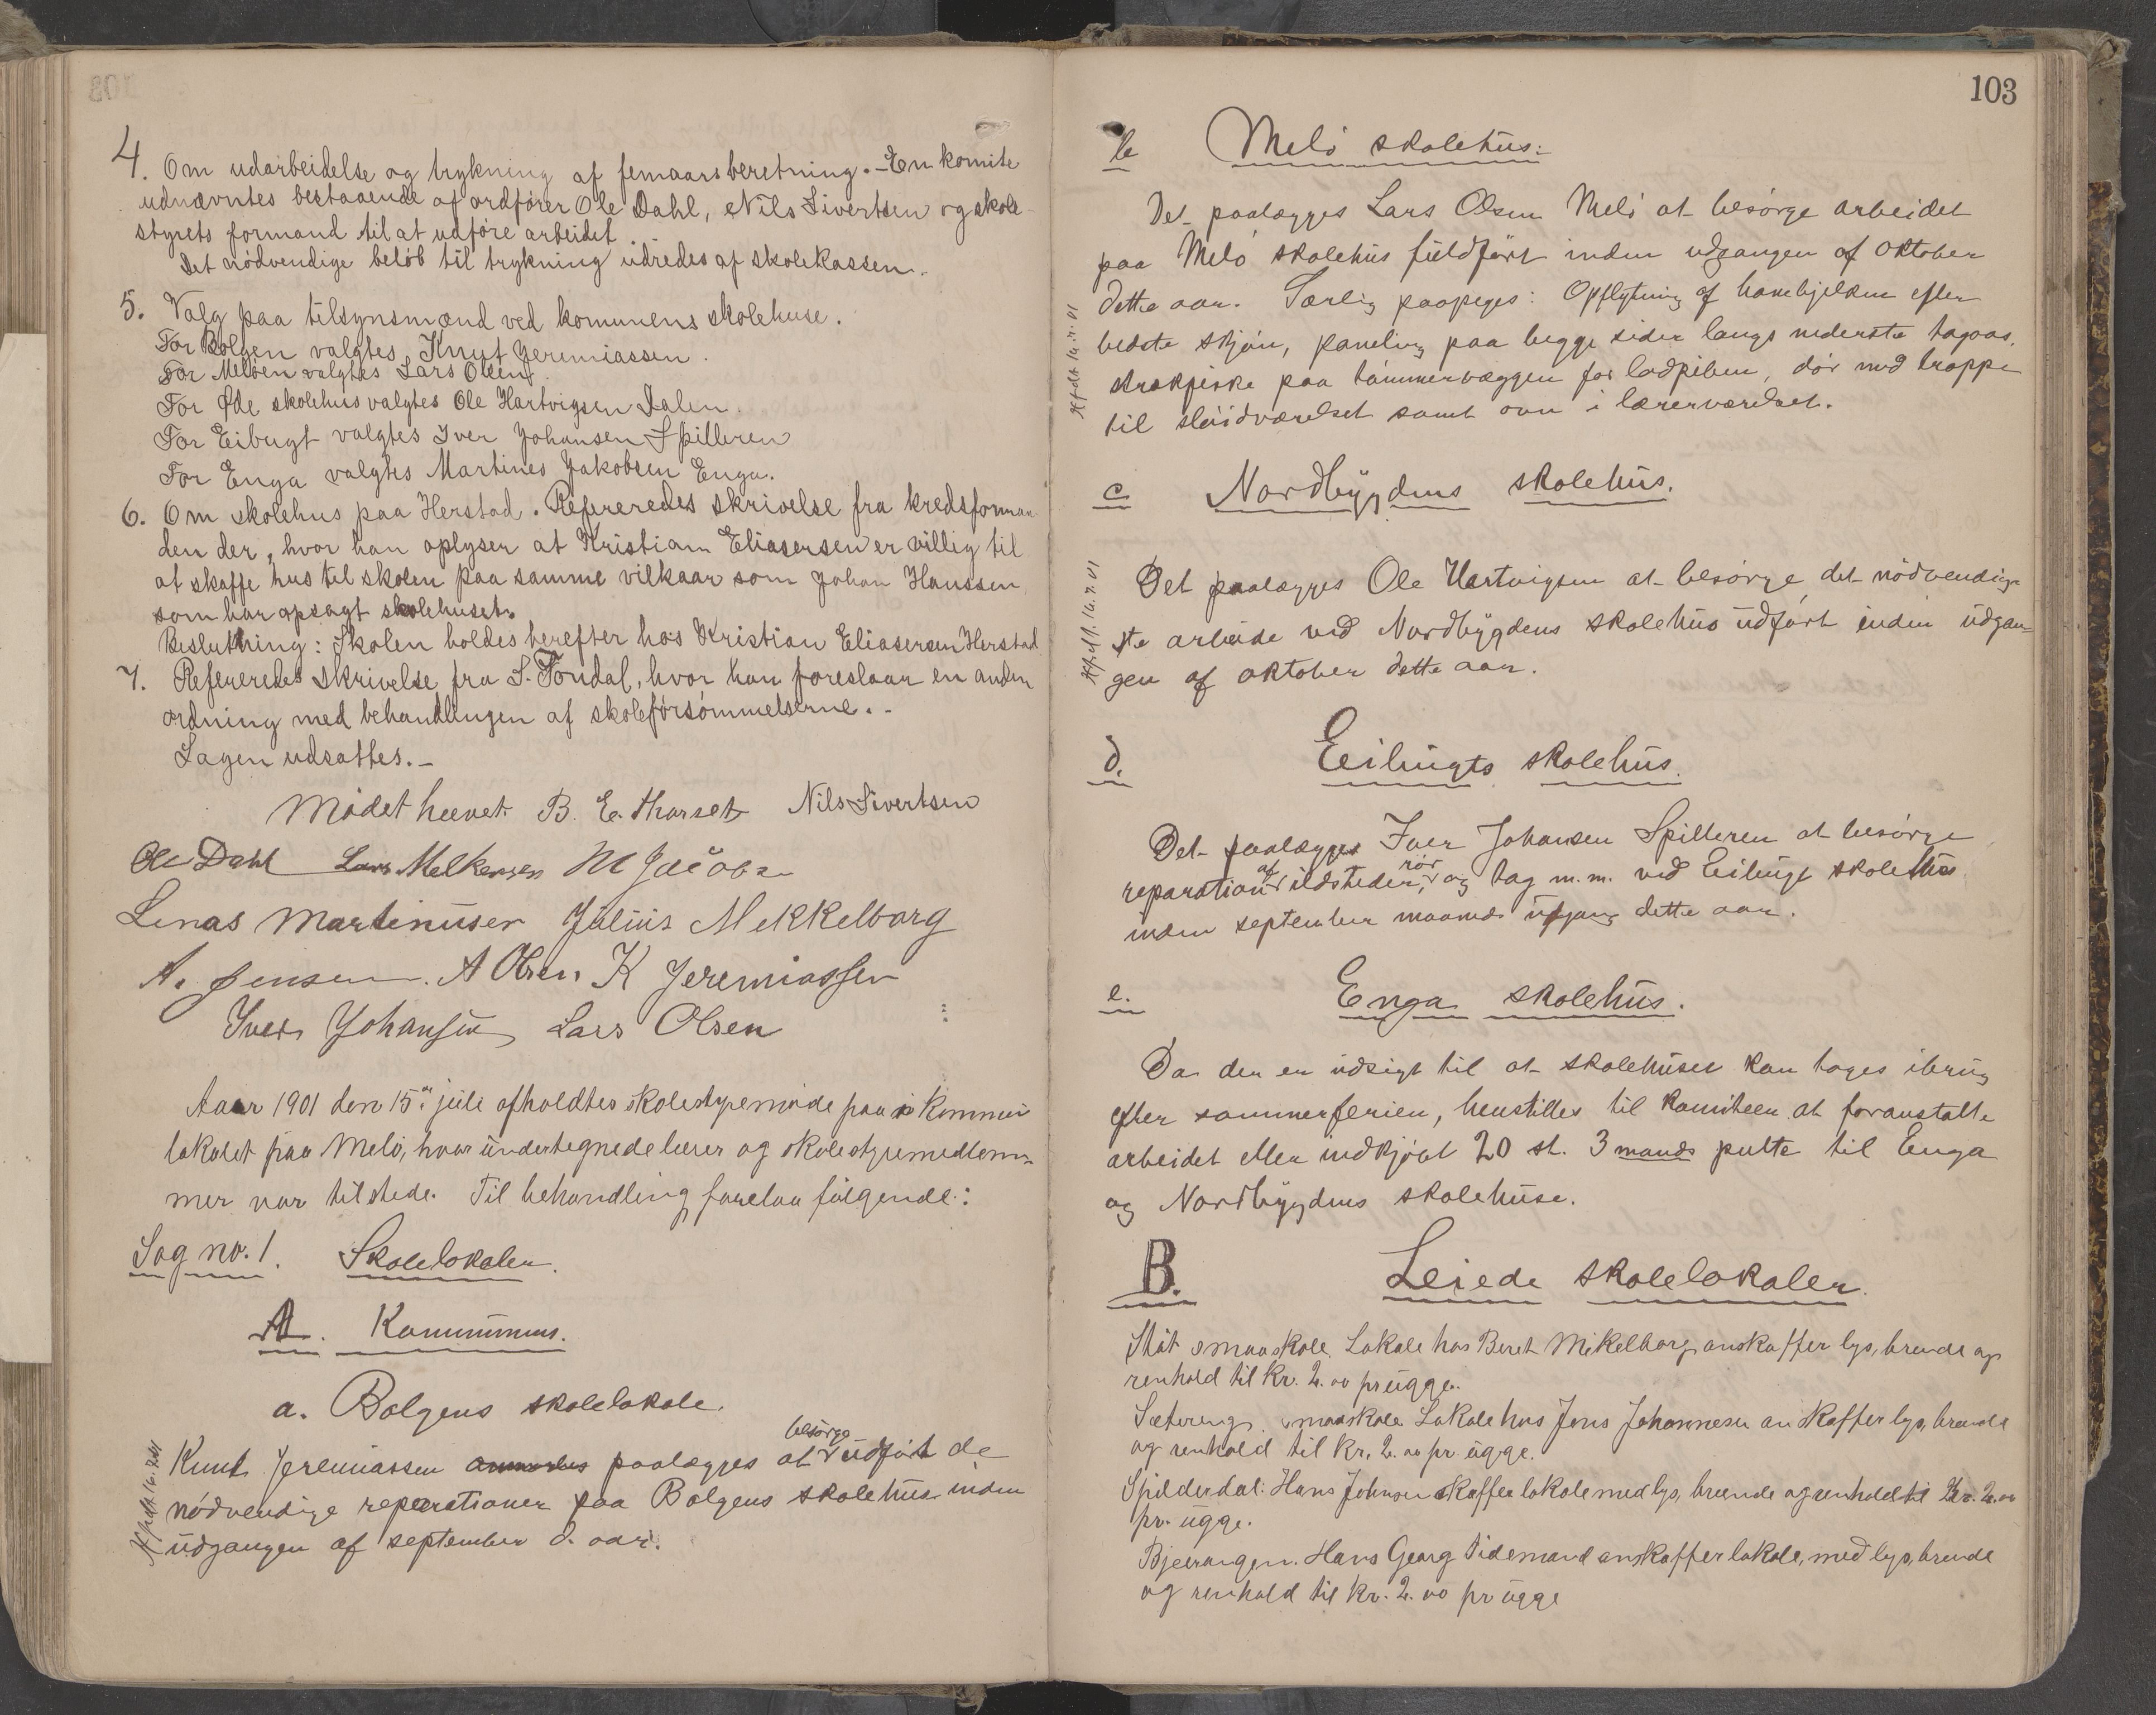 4. Om udarbeidelse og trykning af femaarsberetning. - En komite
udnævntes bestaaende af ordfører Ole Dahl, Nils Sivertsen og skole
styrets formand til at udføre arbeidet.
Det nödvendige belöb til trykning udredes af skolekassen.
5. Valg paa tilsynsmænd ved kommunens skolehuse.
For Bolgen valgtes Knut Jeremiassen.
For Melöen valgtes Lars Olsen
For Øde skolehus valgtes Ole Hartvigsen Dalen.
For Eibugt valgtes Iver Johansen Spilleren
For Enga valgtes Martines Jakobsen Enga.
6. Om skolehus paa Herstad. Refereredes skrivelse fra kredsforman
den der, hvor han oplyser at Kristian Eliasersen er villig til
at skaffe hus til skolen paa samme vilkaar som Johan Hanssen
som har opsagt skolehuset.
Beslutning: Skolen holdes herefter hos Kristian Eliasersen Herstad
7. Refereredes skrivelse fra S. Fondal, hvor han foreslaar en anden
ordning med behandlingen af skoleforsömmelserne. -
Sagen udsattes. -
Mödet hævet. B. E. Thorset Nils Sivertsen
Ole Dahl Lars Melkersen M Jacobs
Linas Martinusen Julius Mekkelborg
A. Jensen. A Olsen K Jeremiassen
Iver Johansen Lars Olsen
Aaar 1901 den 15. juli afholdtes skolestyremöde paa i kommu
lokalet paa Melö, hvor undertegnede lærer og skolestyremedlem-
mer var tilstede. Til behandling forelaa fölgende:
Sag no. 1. Skolelokaler.
A. Kommunens.
a. Bolgens skolelokale.
besörge
Knut Jeremiassen paalægges at udfört de
nödvendige reparationer paa Bolgens skolehus inden
udgangen af september d. aar.
103
b Melö skolehus:
Det paalægges Lars Olsen Melö at besörge arbeidet
paa Melö skolehus fuldfört inden udgangen af oktober
dette aar. Særlig paapeges: Opflytning af hanebjelken efter
bedste skjön, paneling paa begge sider langs nederste tagaas,
strækfiske paa tömmervæggen for ladpiben, dör med trappe
til slöidværelset samt ovn i lærerværelset.
c Nordbygdens skolehus.
Det paalægges Ole Hartvigsen at besörge det nödvendig-
ste arbeide ved Nordbygdens skolehus udfört inden udgan-
gen af oktober dette aar.
d. Eibugts skolehus.
Det paalægges Iver Johansen Spilleren at besörge
af rör
reparation ildsteder, og tag m.m. ved Eibugt skolehus
inden september maaneds udgang dette aar.
e. Enga skolehus.
Da der er udsigt til at skolehuset kan tages ibrug
efter sommerferien, henstilles til komiteen at foranstalte
arbeidet eller indkjöbt 20 st. 3 mands pulte til Enga
og Nordbygdens skolehuse.
B. Leiede skolelokaler.
Stöt smaaskole. Lokale hos Beret Mikelborg anskaffer lys, brende og
renhold til kr. 2.00 pr ugge.
Sætereng smaaskole Lokale hos Jens Johannesen anskaffer lys, brende
og renhold til kr. 2.00 pr. ugge.
Spilderdal: Hans Johnsen skaffer lokale med lys, brende og renhold til kr. 2.00
pr. ugge.
Bjerangen. Hans Georg Tidemand anskaffer lokale, med lys, brende
og renhold til kr. 2.00 pr ugge